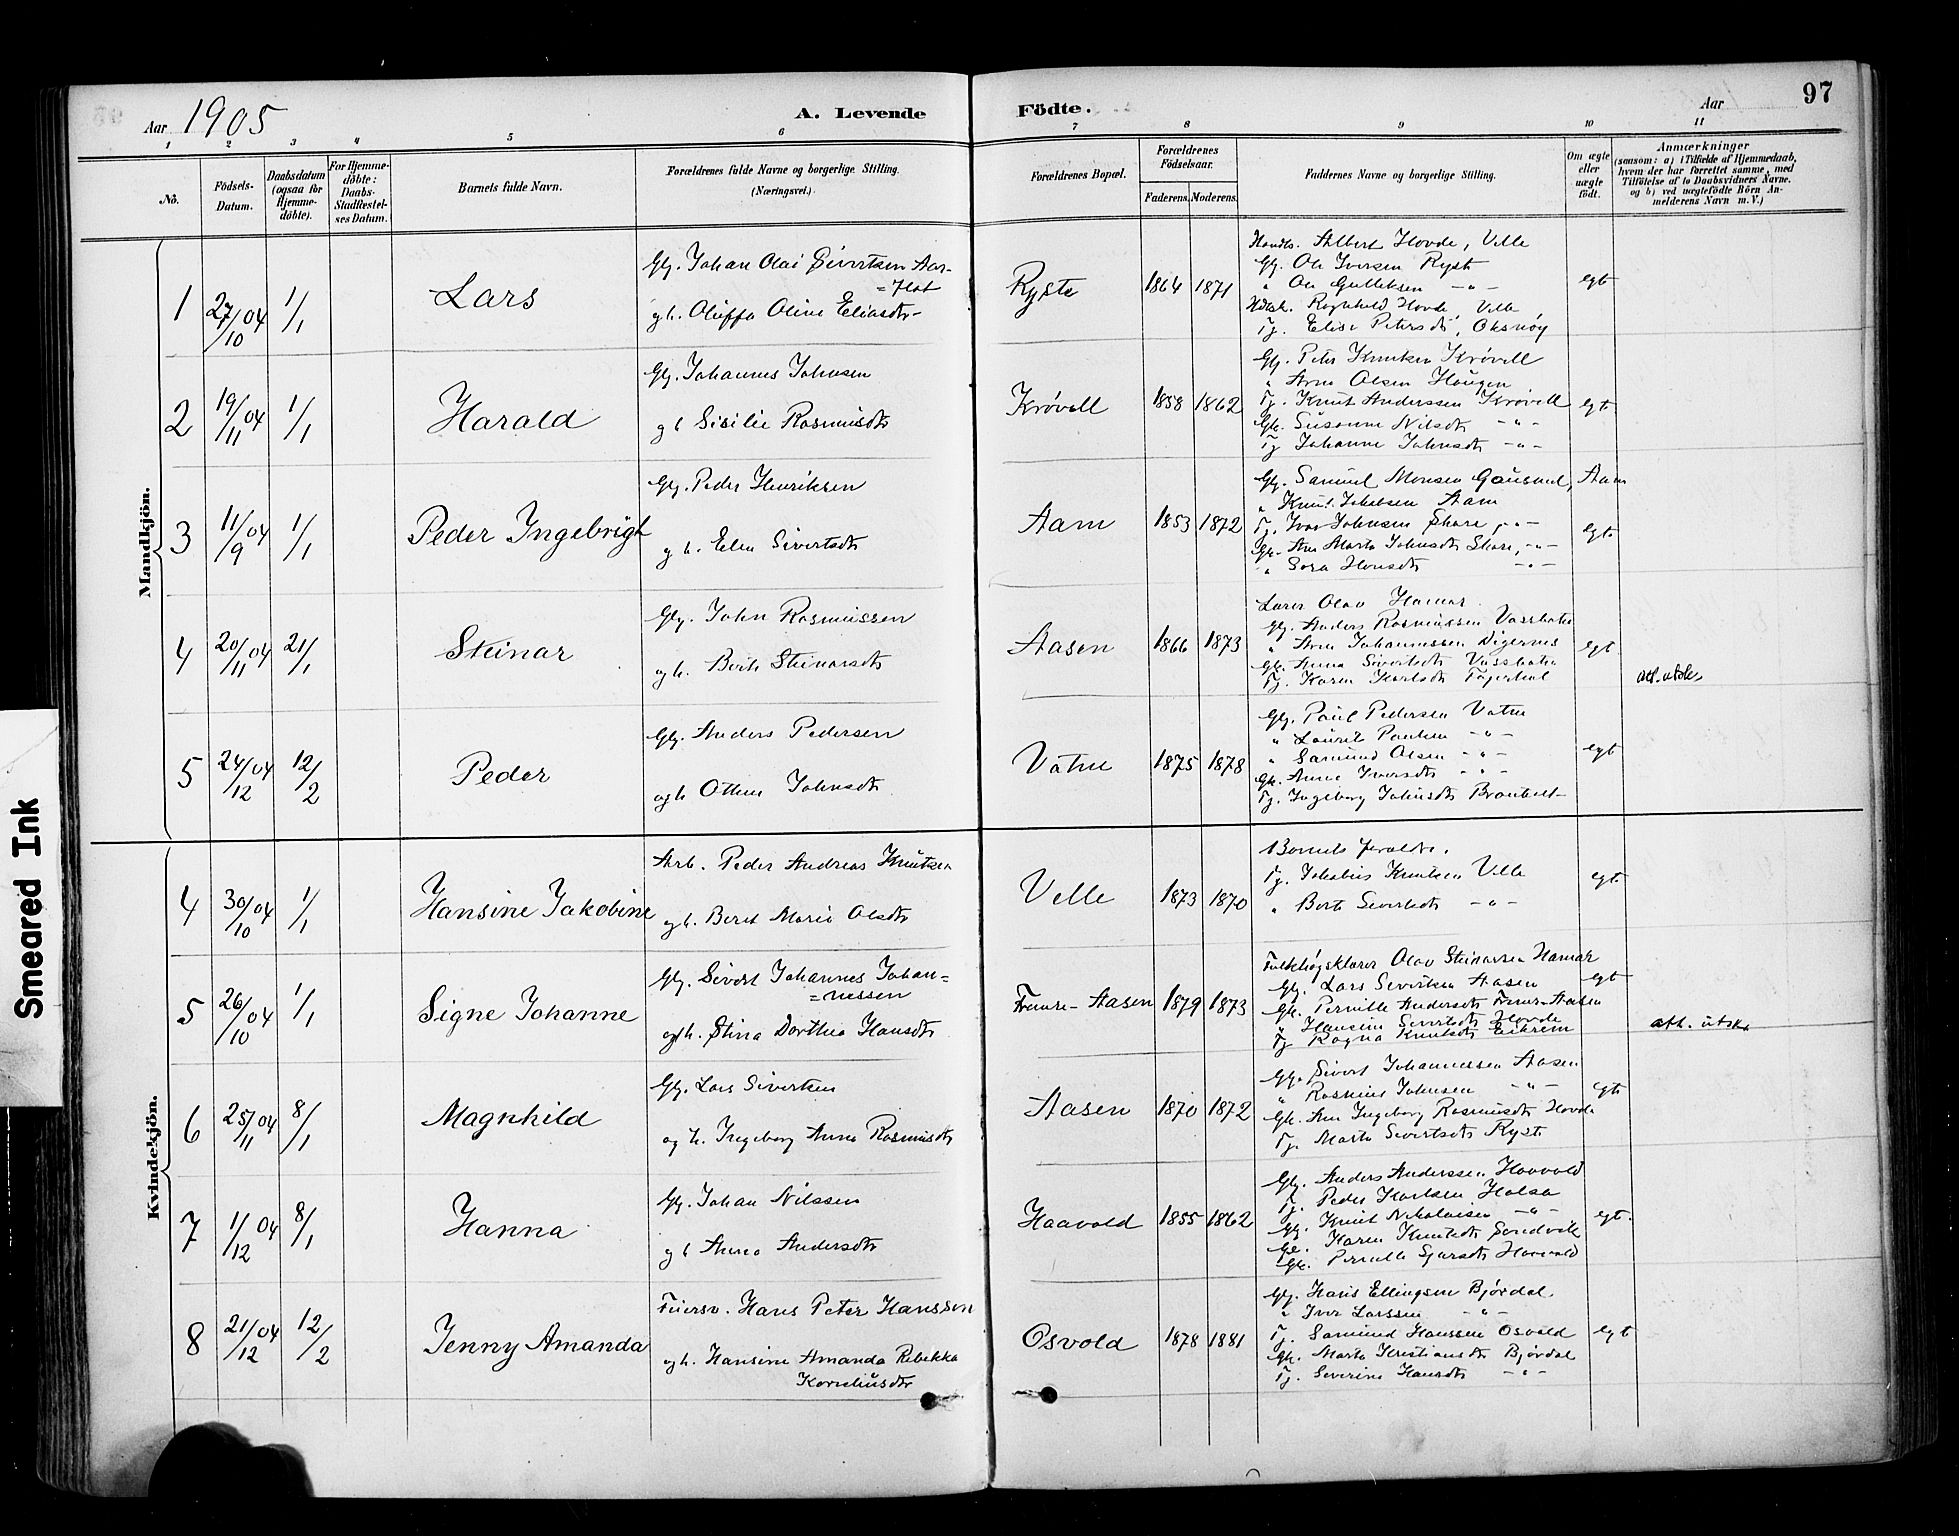 Aar 1905
A. Levende Födte.
Aar
97
1 2 3 4 5 6 7 8 9 10 11
No.
Födsels-Datum.
Daabsdatum (ogsaa for Hjemme-döbte).
For Hjemme-döbte: Daabs-Stadfestel-ses Datum.
Barnets fulde Navn.
Forældrenes fulde Navne og borgerlige Stilling. (Næringsvei.)
Forældrenes Bopæl.
Forældrenes Födselsaar.
Faderens. Moderens.
Faddernes Navne og borgerlige Stilling.
Om ægte eller uægte födt.
Anmærkninger
(saasom: a) i Tilfælde af Hjemmedaab, hvem der har forrettet samme, med Tilföielse af to Daabsvidners Navne, og b) ved uægtefödte Börn An-melderens Navn m. V.)
Mandkjön.
1 27/10 04 1/1 Lars
Gbr. Johan Olai Sivertsen Aar-
=flot
gh. Oluffa Oline Eliasdtr
Ryste 1864 1871
Handls. Albert Hovde, Velle
Gbr. Ole Iversen Ryste
" Ole Gulleksen -"-
Ragnhild Hovde, Velle
Tj. Elise Petersdt, Oksnøy
egt
2 19/11 04 1/1 Harald
Gbr. Johannes Johnsen
gh Sisilie Rasmusdtr
Krøvell 1858 1862
Gbr. Peter Knutsen Krøvell
" Arne Olsen Haugen
Tj. Knut Anderssen Krøvell
Gk. Susanne Nilsdtr -"-
Tj Johanne Johnsdtr -"-
egt
3 11/9 04 1/1 Peder Ingebrigt
Gbr. Peder Henriksen
gh. Elen Sivertsdtr
Aam 1853 1872
Gbr. Samuel Monsen Gausnes, Aam
" Knut Jakobsen Aam
Tj. Ivar Johnsen Skare, -"-
Gk. Ane Marta Johnsdtr Skare, -"-
" Sara Hansdtr -"-
egt
4 20/11 04 21/1 Steinar
Gbr. John Rasmussen
ogh. Berte Steinarsdtr
Aasen 1866 1873
Lærer Olav Hamar
Gbr. Anders Rasmussen
" Arne Johannessen Digernes
Gk. Anna Sivertsdtr
Tj. Karen Karlsdt
egt
att. utsk.
5 24/12 04 12/2 Peder
Gbr. Anders Pedersen
ogh Oline Johnsdtr
Vatne 1875 1878
Gbr. Paul Pedersen Vatne
" Laurit Paulsen -"-
" Samund Olsen -"-
Gk. Anne Iversdtr -"-
Tj. Ingeborg Johnsdtr
egt
Kvindekjön.
4 30/10 04 1/1 Hansine Jakobine
Arb. Peder Andreas Knutsen
ogh. Beret Marie Olsdtr
Velle 1873 1870
Barnets foreldre.
Tj. Johannes Knutsen Velle
" Berte Sivertsdtr -"-
egt
5 26/10 04 1/1 Signe Johanne
Gbr. Sivert Johannes Johan=
=nessen
ogh. Stina Dorthea Hansdtr
Fremre-Aasen 1879 1873
Folkhøgsklærer Olav Steinarsen Hamar
Gbr. Lars Sivertsen Aasen
Gk. Pernille Andersdtr Fremre-Aasen
" Hansine Sivertsdtr Hovde
Tj Ragna Knutsdtr Eikrem
egt
att. utsk.
6 25/11 04 8/1 Magnhild
Gbr. Lars Sivertsen
og h. Ingeborg Anna Rasmusdtr
Aasen 1870 1872
Gbr. Sivert Johannessen Aasen
" Rasmus Johnsen -"-
Gk. Ane Ingeborg Rasmusdtr Hovde
Tj. Marta Sivertsdtr Ryste
egt
7 1/12 04 8/1 Hanna
Gbr. Johan Nilssen
gh Anna Andersdtr
Haavold 1855 1862
Gbr. Anders Anderssen Haavold
Tj. Peder Karlsen Halsa
Gbr. Knut Nikolaisen -"-
Gk. Karen Knutsdtr Sandvik
Gk. Pernille Haavold
egt.
8 21/12 04 12/2 Jenny Amanda
Hans Peter Hanssen
ogh. Hansine Amanda Rebekka
Korneliusdtr
Osvold 1878 1881
Gbr. Hans Ellingsen Bjørdal
" Iver Larssen -"-
Tj. Samund Hanssen Osvold
Gk. Marta Kristiansdtr Bjørdal
Tj. Severine Hansdtr -"-
egt
Smeared Ink